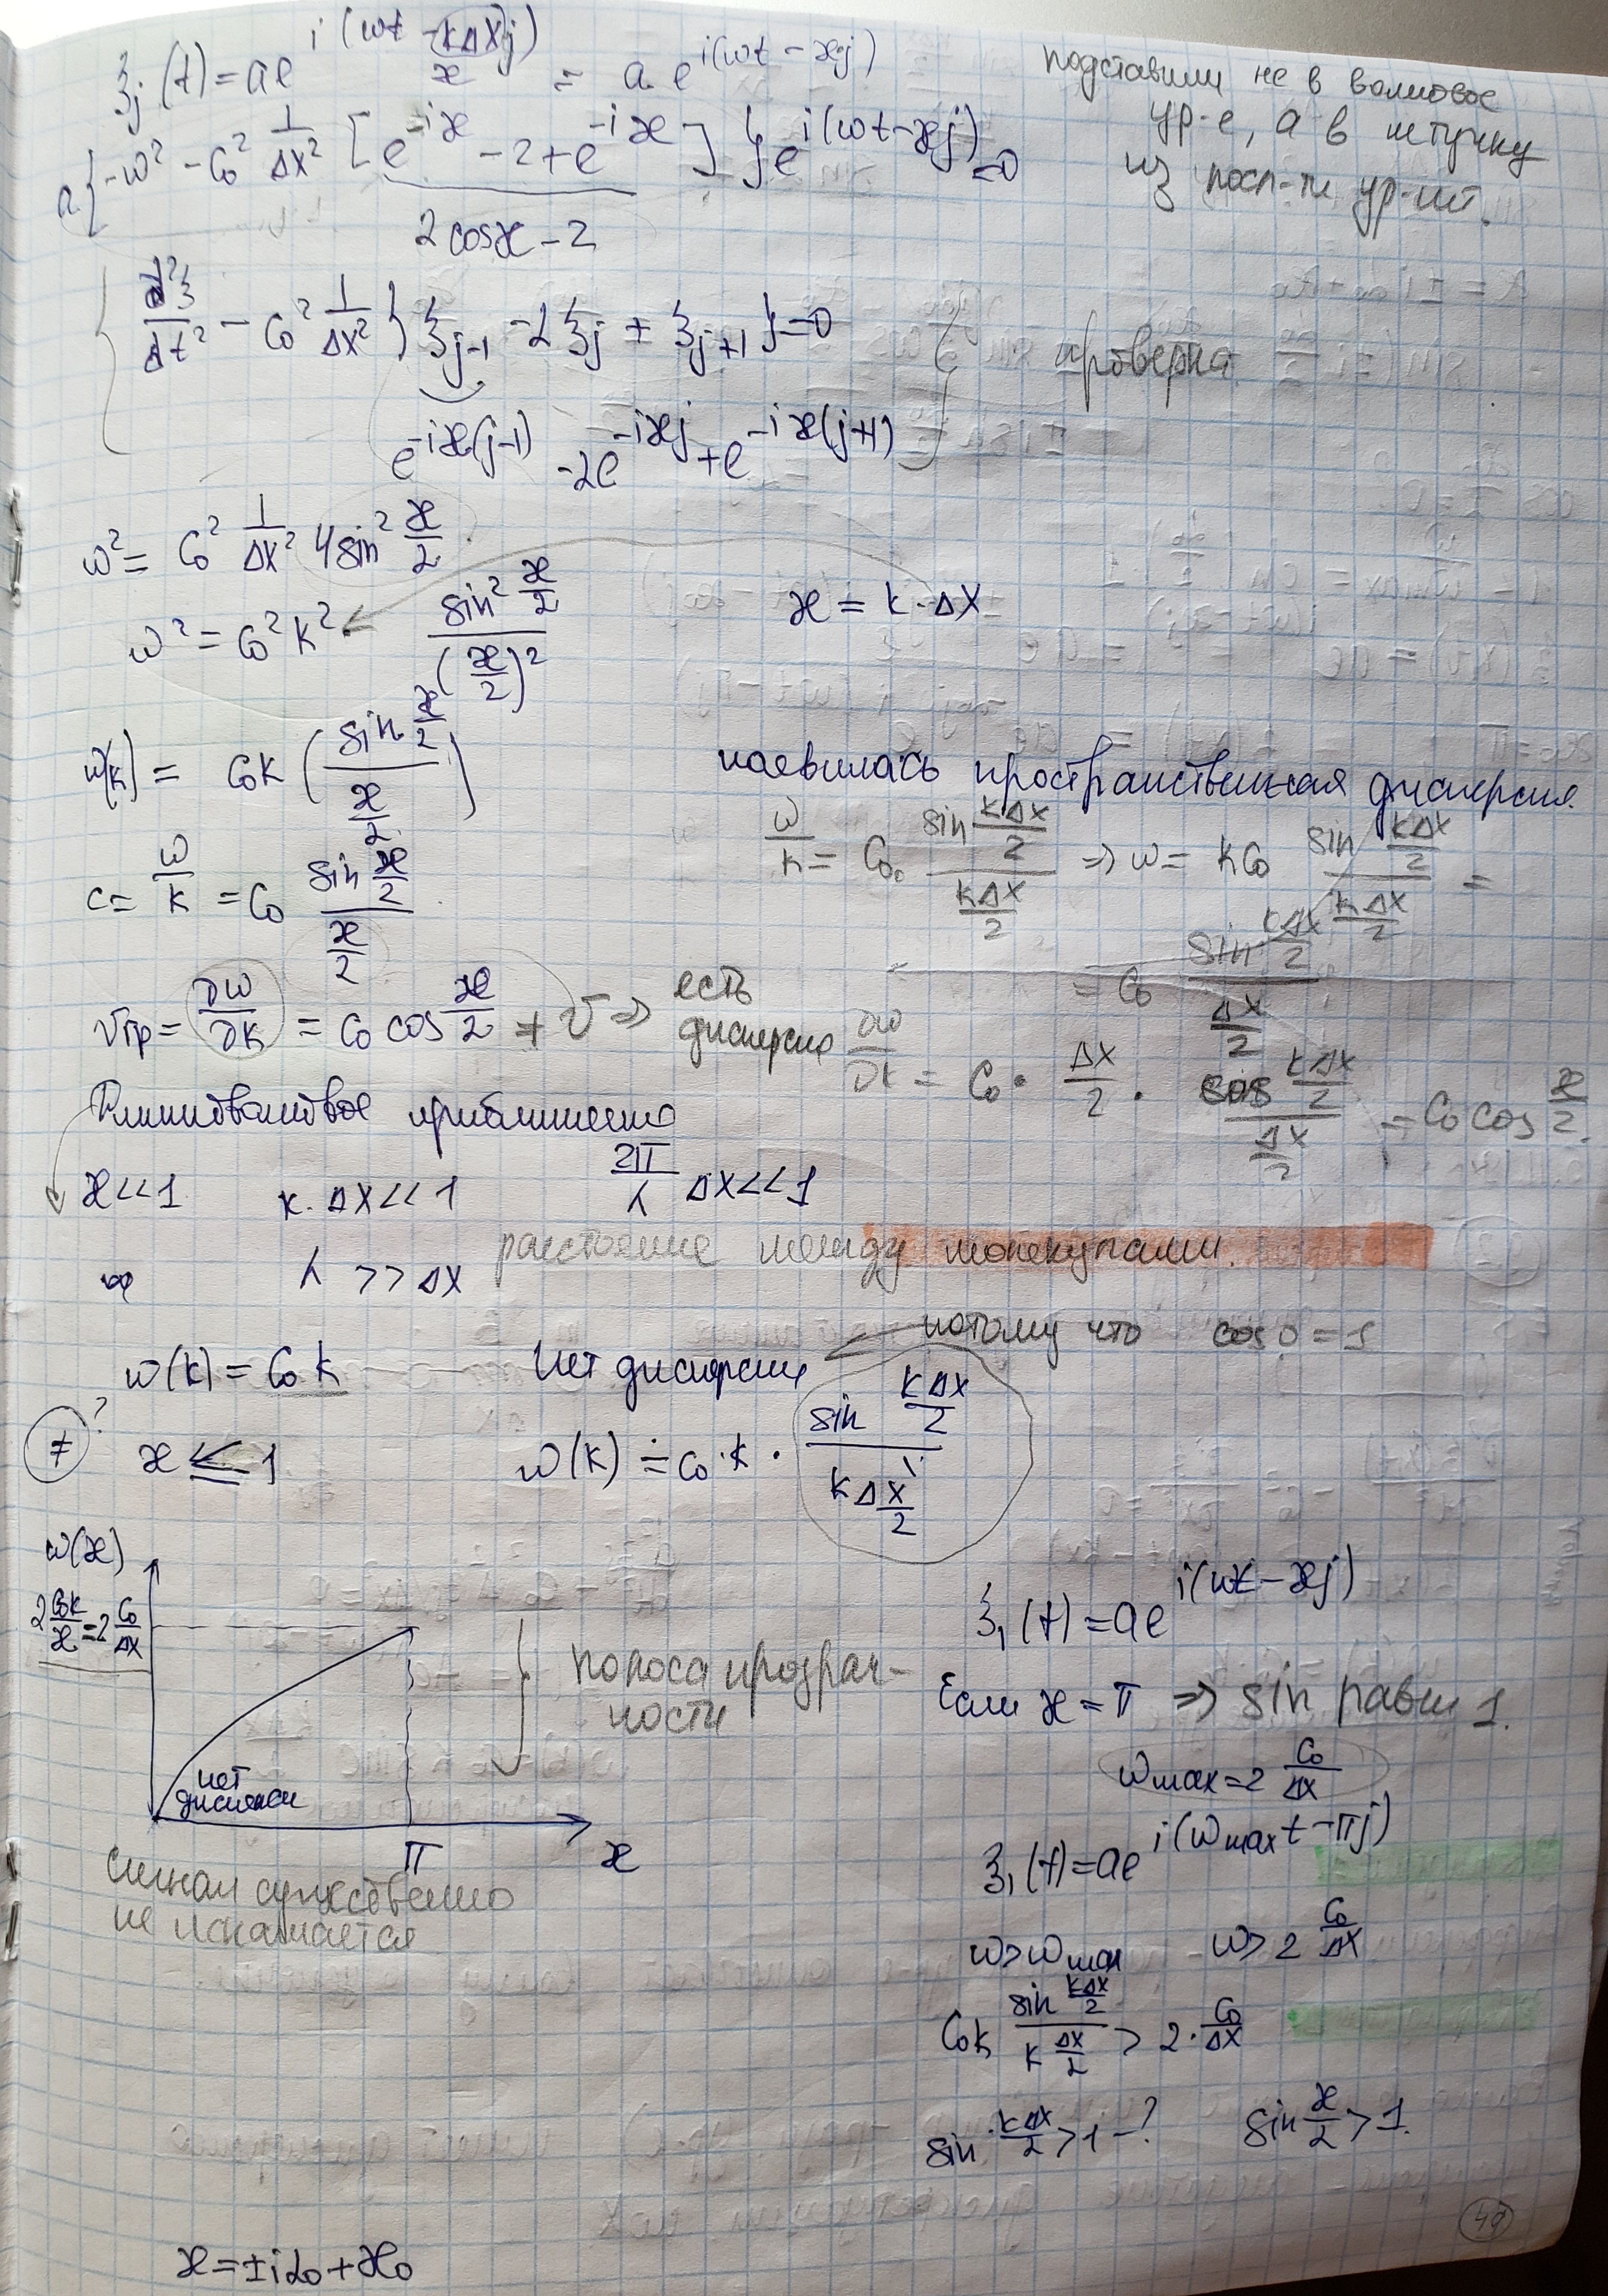 ξj(t) = ae^{i(ωt − (kΔx)j)} = a e^{i(ωt − ϰj)}
ϰ
подставим не в волновое
ур-е, а в штучку
из посл-ти ур-ий.
a{−ω² − C₀² 1/Δx² [e^{−iϰ} − 2 + e^{−iϰ}]} e^{i(ωt−ϰj)} = 0
2cosϰ − 2
{ d²ξ/dt² − C₀² 1/Δx² } ξj−1 − 2ξj + ξj+1 } = 0
проверка
e^{−iϰ(j−1)} −2e^{−iϰj} + e^{−iϰ(j+1)}
ω² = C₀² 1/Δx² 4sin² ϰ/2
ω² = C₀² k² · sin² ϰ/2 / (ϰ/2)²
ϰ = k·Δx
ω(k) = C₀k (sin ϰ/2 / ϰ/2)
появилась пространственная дисперсия.
c = ω/k = C₀ sin ϰ/2 / ϰ/2
ω/k = C₀ sin kΔx/2 / kΔx/2 ⇒ ω = kC₀ sin kΔx/2 / kΔx/2 =
= C₀ sin kΔx/2 / Δx/2
vгр = ∂ω/∂k = C₀ cos ϰ/2 ≠ v ⇒ есть
дисперсия
∂ω/∂k = C₀ · Δx/2 · cos kΔx/2 / Δx/2 = C₀ cos ϰ/2.
Длинноволновое приближение
ϰ<<1 k·Δx<<1 2π/λ Δx<<1
λ >> Δx расстояние между молекулами.
потому что cos 0 = 1
ω(k) = C₀k — нет дисперсии
≠ ?
ϰ ≤ 1
ω(k) = C₀·k · sin kΔx/2 / kΔx/2
ω(ϰ)
2 C₀k/ϰ = 2 C₀/Δx
полоса прозрач-
ности
нет
дисперсии
π ϰ
сигнал существенно
не искажается
ξ₁(t) = ae^{i(ωt − ϰj)}
Если ϰ = π ⇒ sin равен 1.
ωmax = 2 C₀/Δx
ξ₁(t) = ae^{i(ωmax t − πj)}
ω > ωmax ω > 2 C₀/Δx
C₀k sin kΔx/2 / k Δx/2 > 2 · C₀/Δx
sin kΔx/2 > 1 − ? sin ϰ/2 > 1.
ϰ = ±iα₀ + ϰ₀